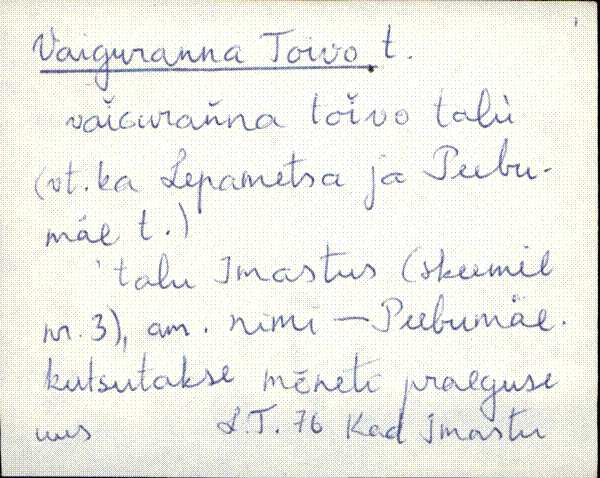 Vaiguranna Toivo t.
vaĭcuraňna toĭvo talù
(vt. ka Lepametsa ja Peebu-
mäe t.)
talu Imastus (skeemil
nr. 3), am. nimi — Peebumäe.
kutsutakse mēneti praeguse
L.T. 76 Kad Imastu